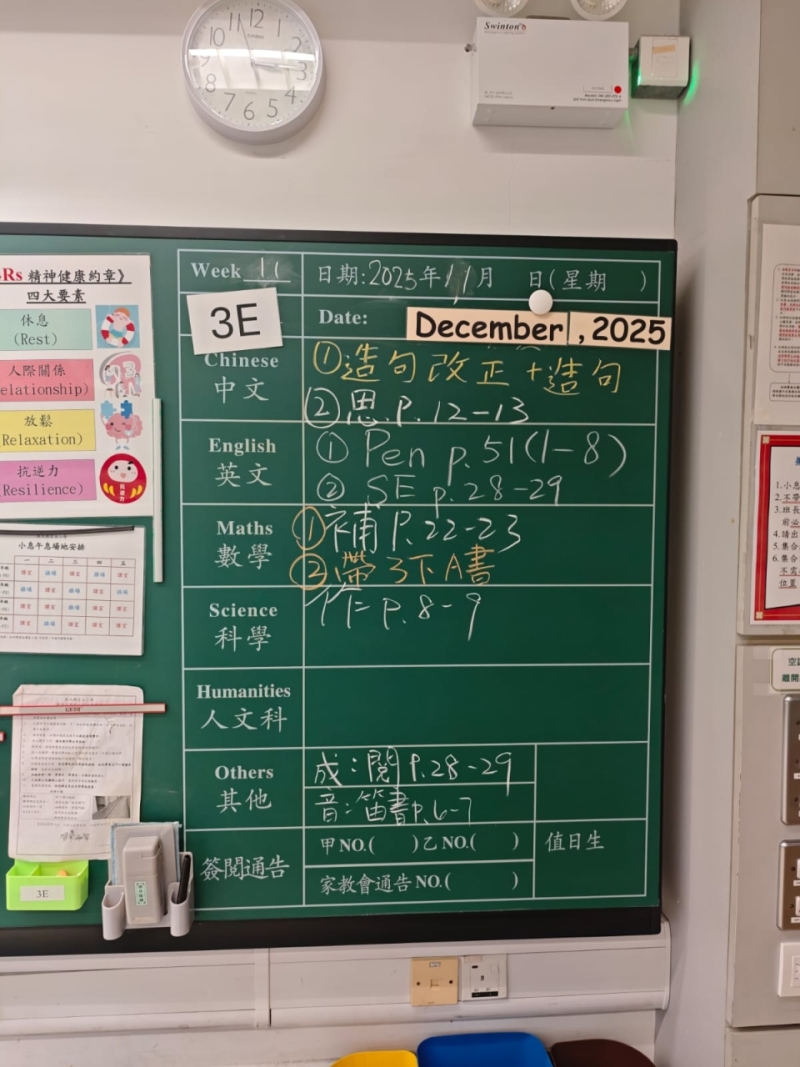 12
1
11
10
2
3
9
8
4
7
6
5
Swinton
Rs 精神健康約章》
四大要素
休息
(Rest)
人際關係
elationship)
放鬆
(Relaxation)
抗逆力
(Resilience)
小息午息場地安排
一 二 三 四 五
Week 11
日期:2025年11月 日(星期 )
3E
Date:
December , 2025
Chinese
中文
①造句改正+造句
②思.P.12-13
English
英文
① Pen p.51(1-8)
② SE p.28-29
Maths
數學
①補P.22-23
②帶3下A書
Science
科學
作 p.8-9
Humanities
人文科
Others
其他
成:閱 P.28-29
音:笛書p.6-7
簽閱通告
甲NO.( )乙NO.( )
家教會通告NO.( )
值日生
3E
1.小息
2.不帶
3.班長
前必
4.請出
5.集合
6.集合
不需
位置
空調
離開